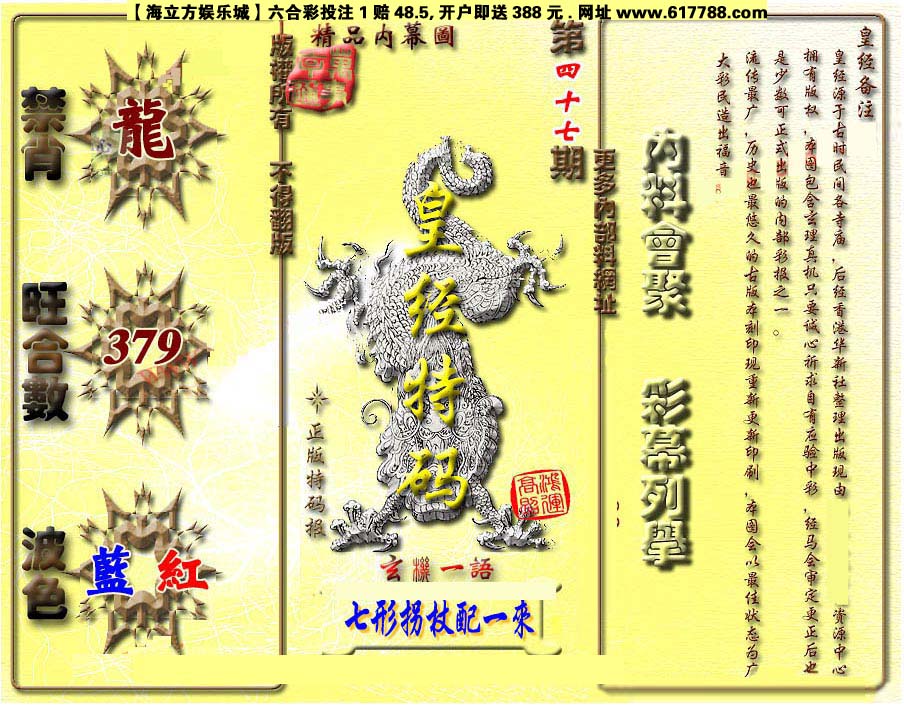 【海立方娱乐城】六合彩投注 1 赔 48.5, 开户即送 388 元 . 网址 www.617788.com
精品内幕圖
第四十七期
版權所有 不得翻版
更多內部料網址
禁肖
龍
旺合數
379
波色
藍 紅
皇经特码
正版特码报
鴻運高照
玄機一語
七形拐杖配一來
內料會聚 彩幕列舉
皇经备注
皇经源于古时民间各寺庙，后经香港华新社整理出版现由 资源中心
拥有版权，本图包含玄理真机只要诚心祈求自有应验中彩，经马会审定更正后也
是少数可正式出版的内部彩报之一。
流传最广，历史也最悠久的古版本刻印现重新更新印刷，本图会以最佳状态为广
大彩民造出福音。